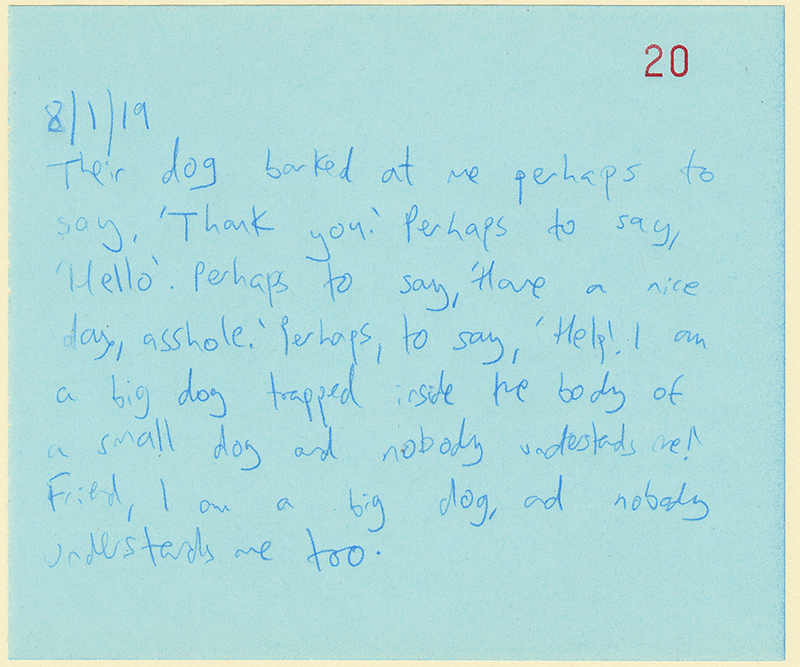 20
8/1/19
Their dog barked at me perhaps to
say, 'Thank you.' Perhaps to say,
'Hello'. Perhaps to say, 'Have a nice
day, asshole.' Perhaps, to say, 'Help! I am
a big dog trapped inside the body of
a small dog and nobody understads me!'
Friend, I am a big dog, and nobody
understands me too.